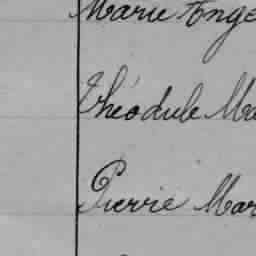 Marie Ange
Théodule Ma
Pierre Mar